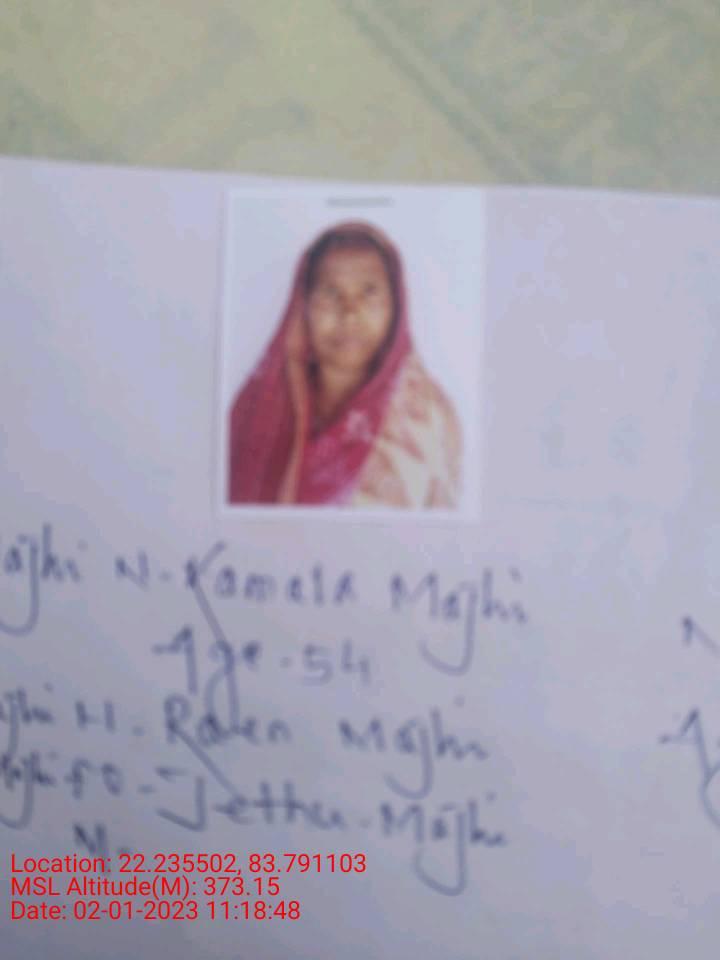 ajhi N-Kamala Majhi
Age-54
ajhi H-Raben Majhi
Majhi FO-Jethu-Majhi
N-
Location: 22.235502, 83.791103
MSL Altitude(M): 373.15
Date: 02-01-2023 11:18:48